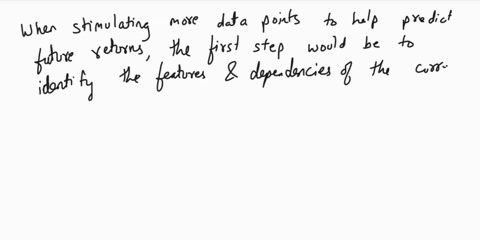 When stimulating more data points to help predict
future returns, the first step would be to
identify the features & dependencies of the curr